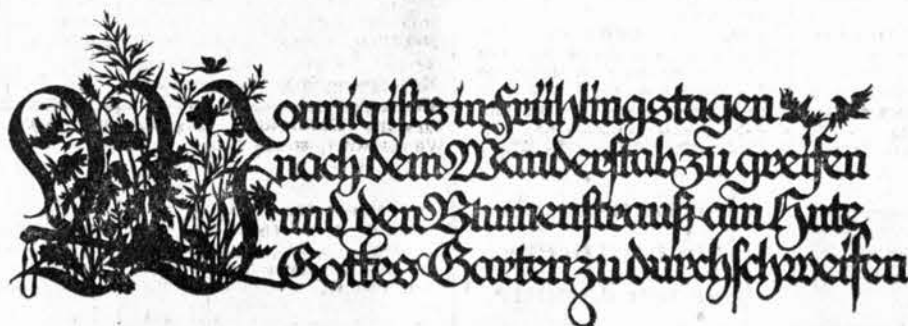 Wonnig ists in Frühlingstagen
nach dem Wanderstab zu greifen
und den Blumenstrauß am Hute
Gottes Garten zu durchschweifen